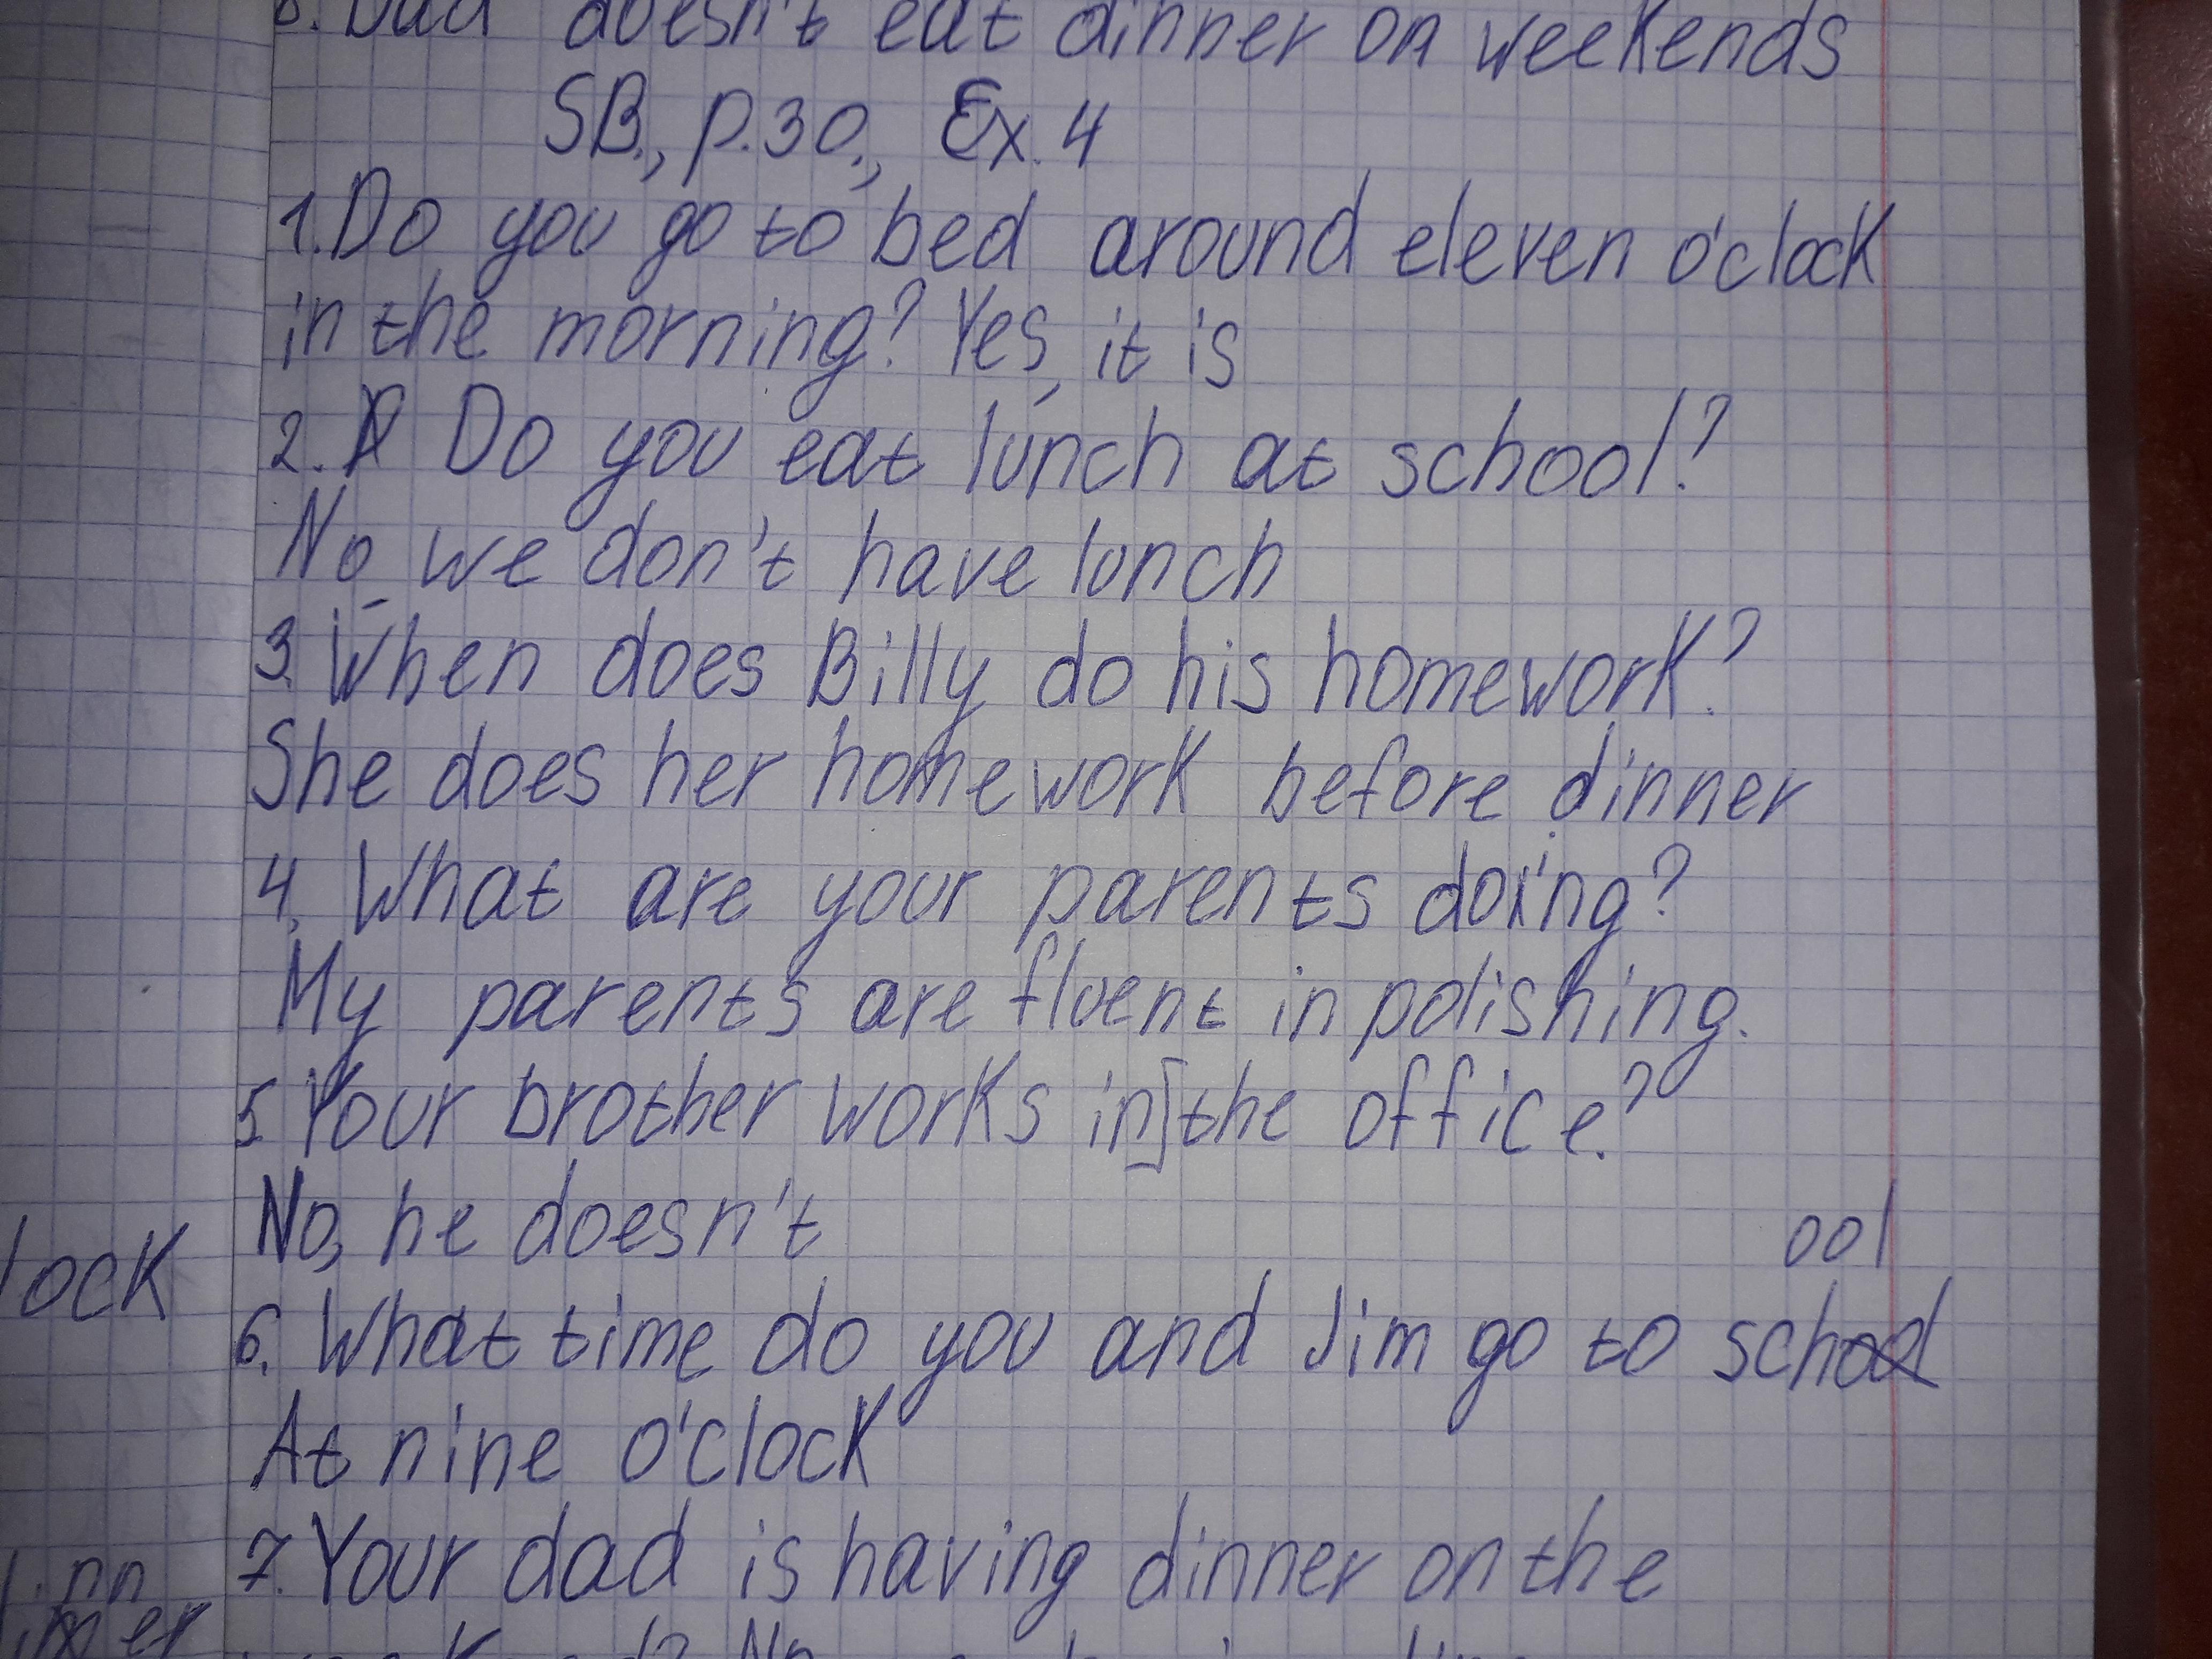 8. Dad doesn't eat dinner on weekends
SB., p.30., Ex. 4
1. Do you go to bed around eleven o'clock
in the morning? Yes, it is
2. Do you eat lunch at school?
No, we don't have lunch
3. When does Billy do his homework?
She does her homework before dinner
4. What are your parents doing?
My parents are fluent in polishing.
5. Your brother works in the office?
No, he doesn't
ool
6. What time do you and Jim go to school
At nine o'clock
7. Your dad is having dinner on the
lock